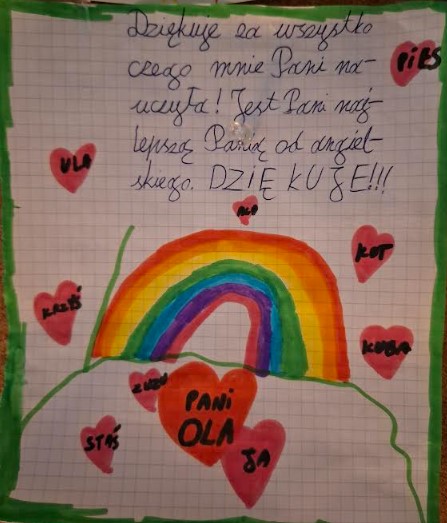 Dziękuję za wszystko
czego mnie Pani na-
uczyła! Jest Pani naj-
lepszą Panią od angiel-
skiego. DZIĘKUJE!!!
PIES
ULA
ALA
KOT
KRZYŚ
KUBA
ZUZU
PANI
OLA
STAŚ
JA